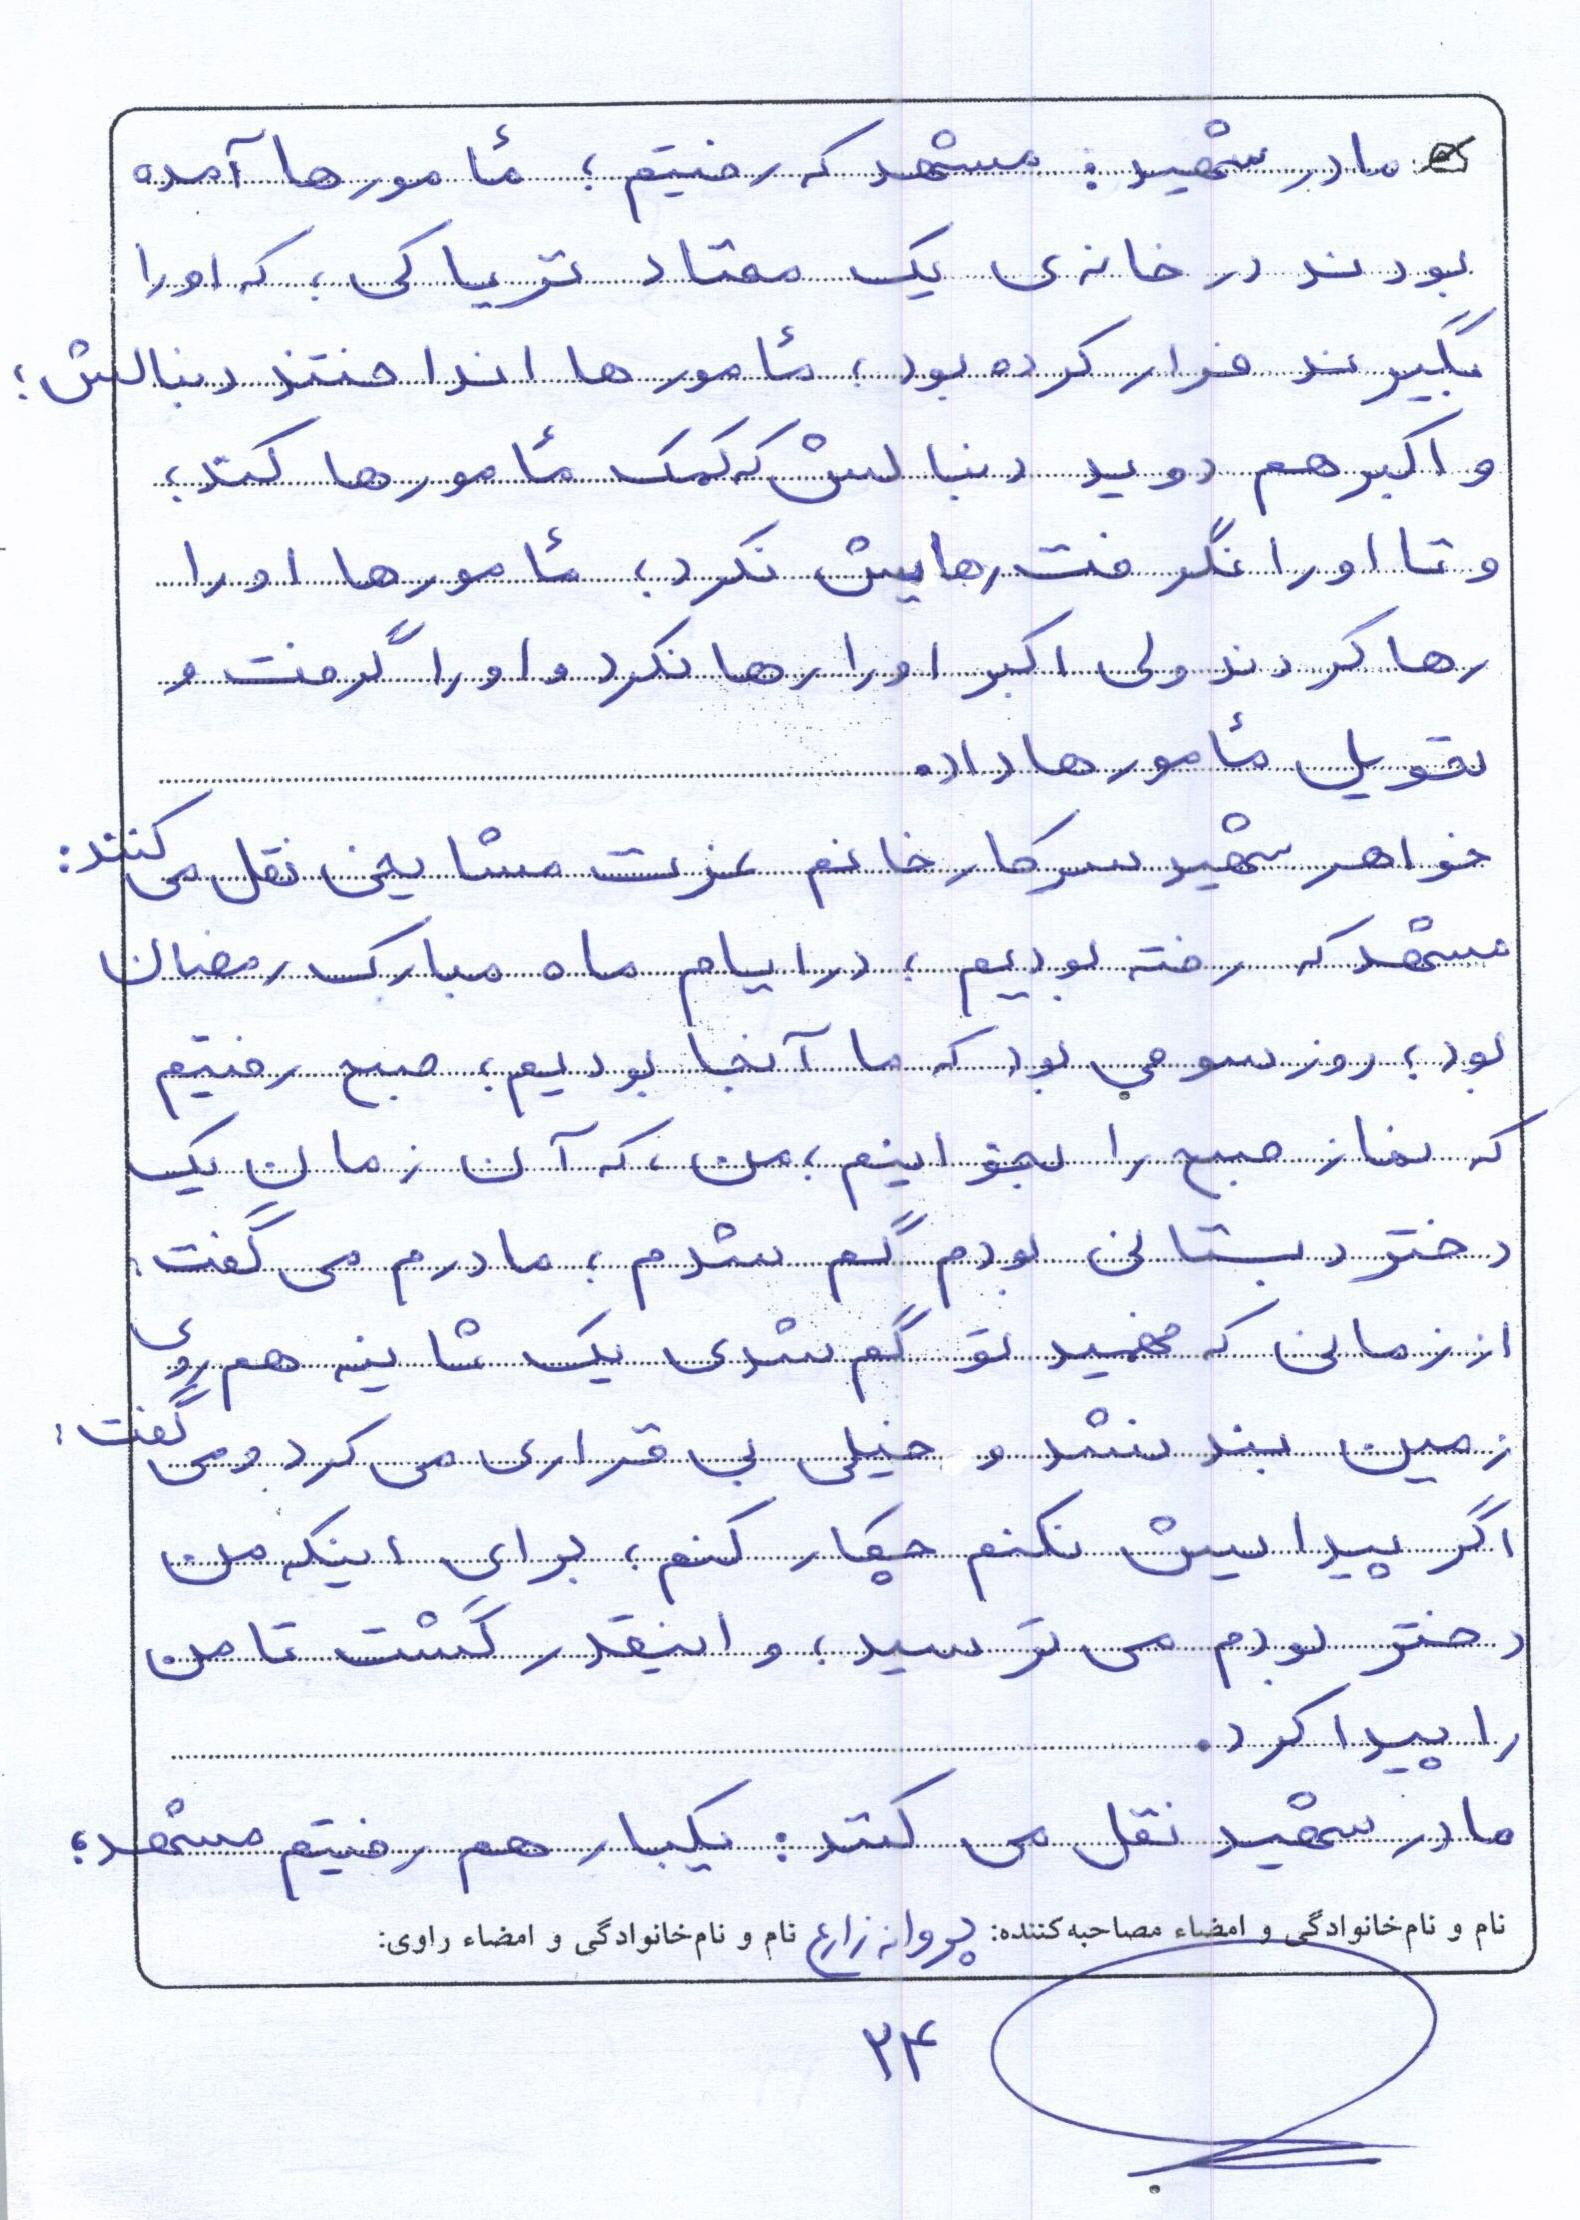 مادر شهید: مشهد که رفتیم؛ مأمورها آمده
بودند در خانه‌ی یک معتاد تریاکی؛ که او را
بگیرند فرار کرده بود؛ مأمورها انداختند دنبالش؛
و اکبر هم دوید دنبالش که کمک مأمورها کند؛
و تا او را نگرفت رهایش نکرد؛ مأمورها او را
رها کردند ولی اکبر او را رها نکرد و او را گرفت و
تحویل مأمورها داد.
خواهر شهید سرکار خانم عزت مشایخی نقل می‌کنند:
مشهد که رفته بودیم؛ در ایام ماه مبارک رمضان
بود؛ روز سومی بود که ما آنجا بودیم؛ صبح رفتیم
که نماز صبح را بخوانیم؛ من، که آن زمان یک
دختر دبستانی بودم گم شدم؛ مادرم می گفت:
از زمانی که فهمید تو گم شدی یک ثانیه هم روی
زمین بند نشد و خیلی بی قراری می کرد و می گفت:
اگر پیدایش نکنم چکار کنم؛ برای اینکه من
دختر بودم می ترسید؛ و اینقدر گشت تا من
را پیدا کرد.
مادر شهید نقل می کند: یکبار هم رفتیم مشهد؛
نام و نام‌خانوادگی و امضاء مصاحبه‌کننده: پروانه زارع نام و نام‌خانوادگی و امضاء راوی:
۲۴